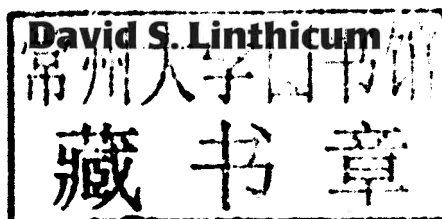 David S. Linthicum
常州大学图书馆
藏书章